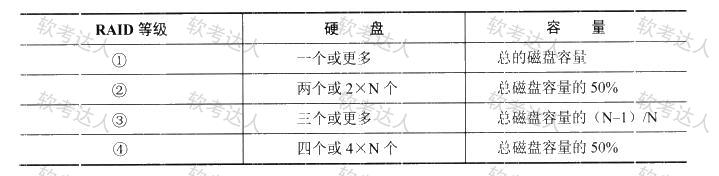 RAID 等级 硬 盘 容 量
① 一个或更多 总的磁盘容量
② 两个或 2×N 个 总磁盘容量的 50%
③ 三个或更多 总磁盘容量的（N–1）/N
④ 四个或 4×N 个 总磁盘容量的 50%
软考达人
软考达人
软考达人
软考达人
软考达人
软考达人
软考达人
软考达人